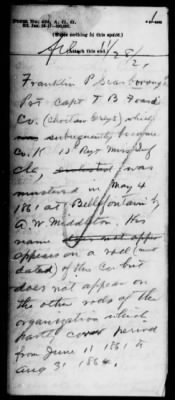 (Write nothing in this space)
1
Attach this end
11/28/
Franklin P
Pvt Capt T B Foard
Co. (Choctaw Greys) which
subsequently became
Co. K 15 Regt Miss Inf
was
mustered in May 4
1861 at Bellefontain by
A. W. Middleton. His
name
appears on a roll (not
dated) of this Co. but
does not appear on
the other rolls of the
organization which
partly cover period
from June 11 1861 to
Aug 31 1864.